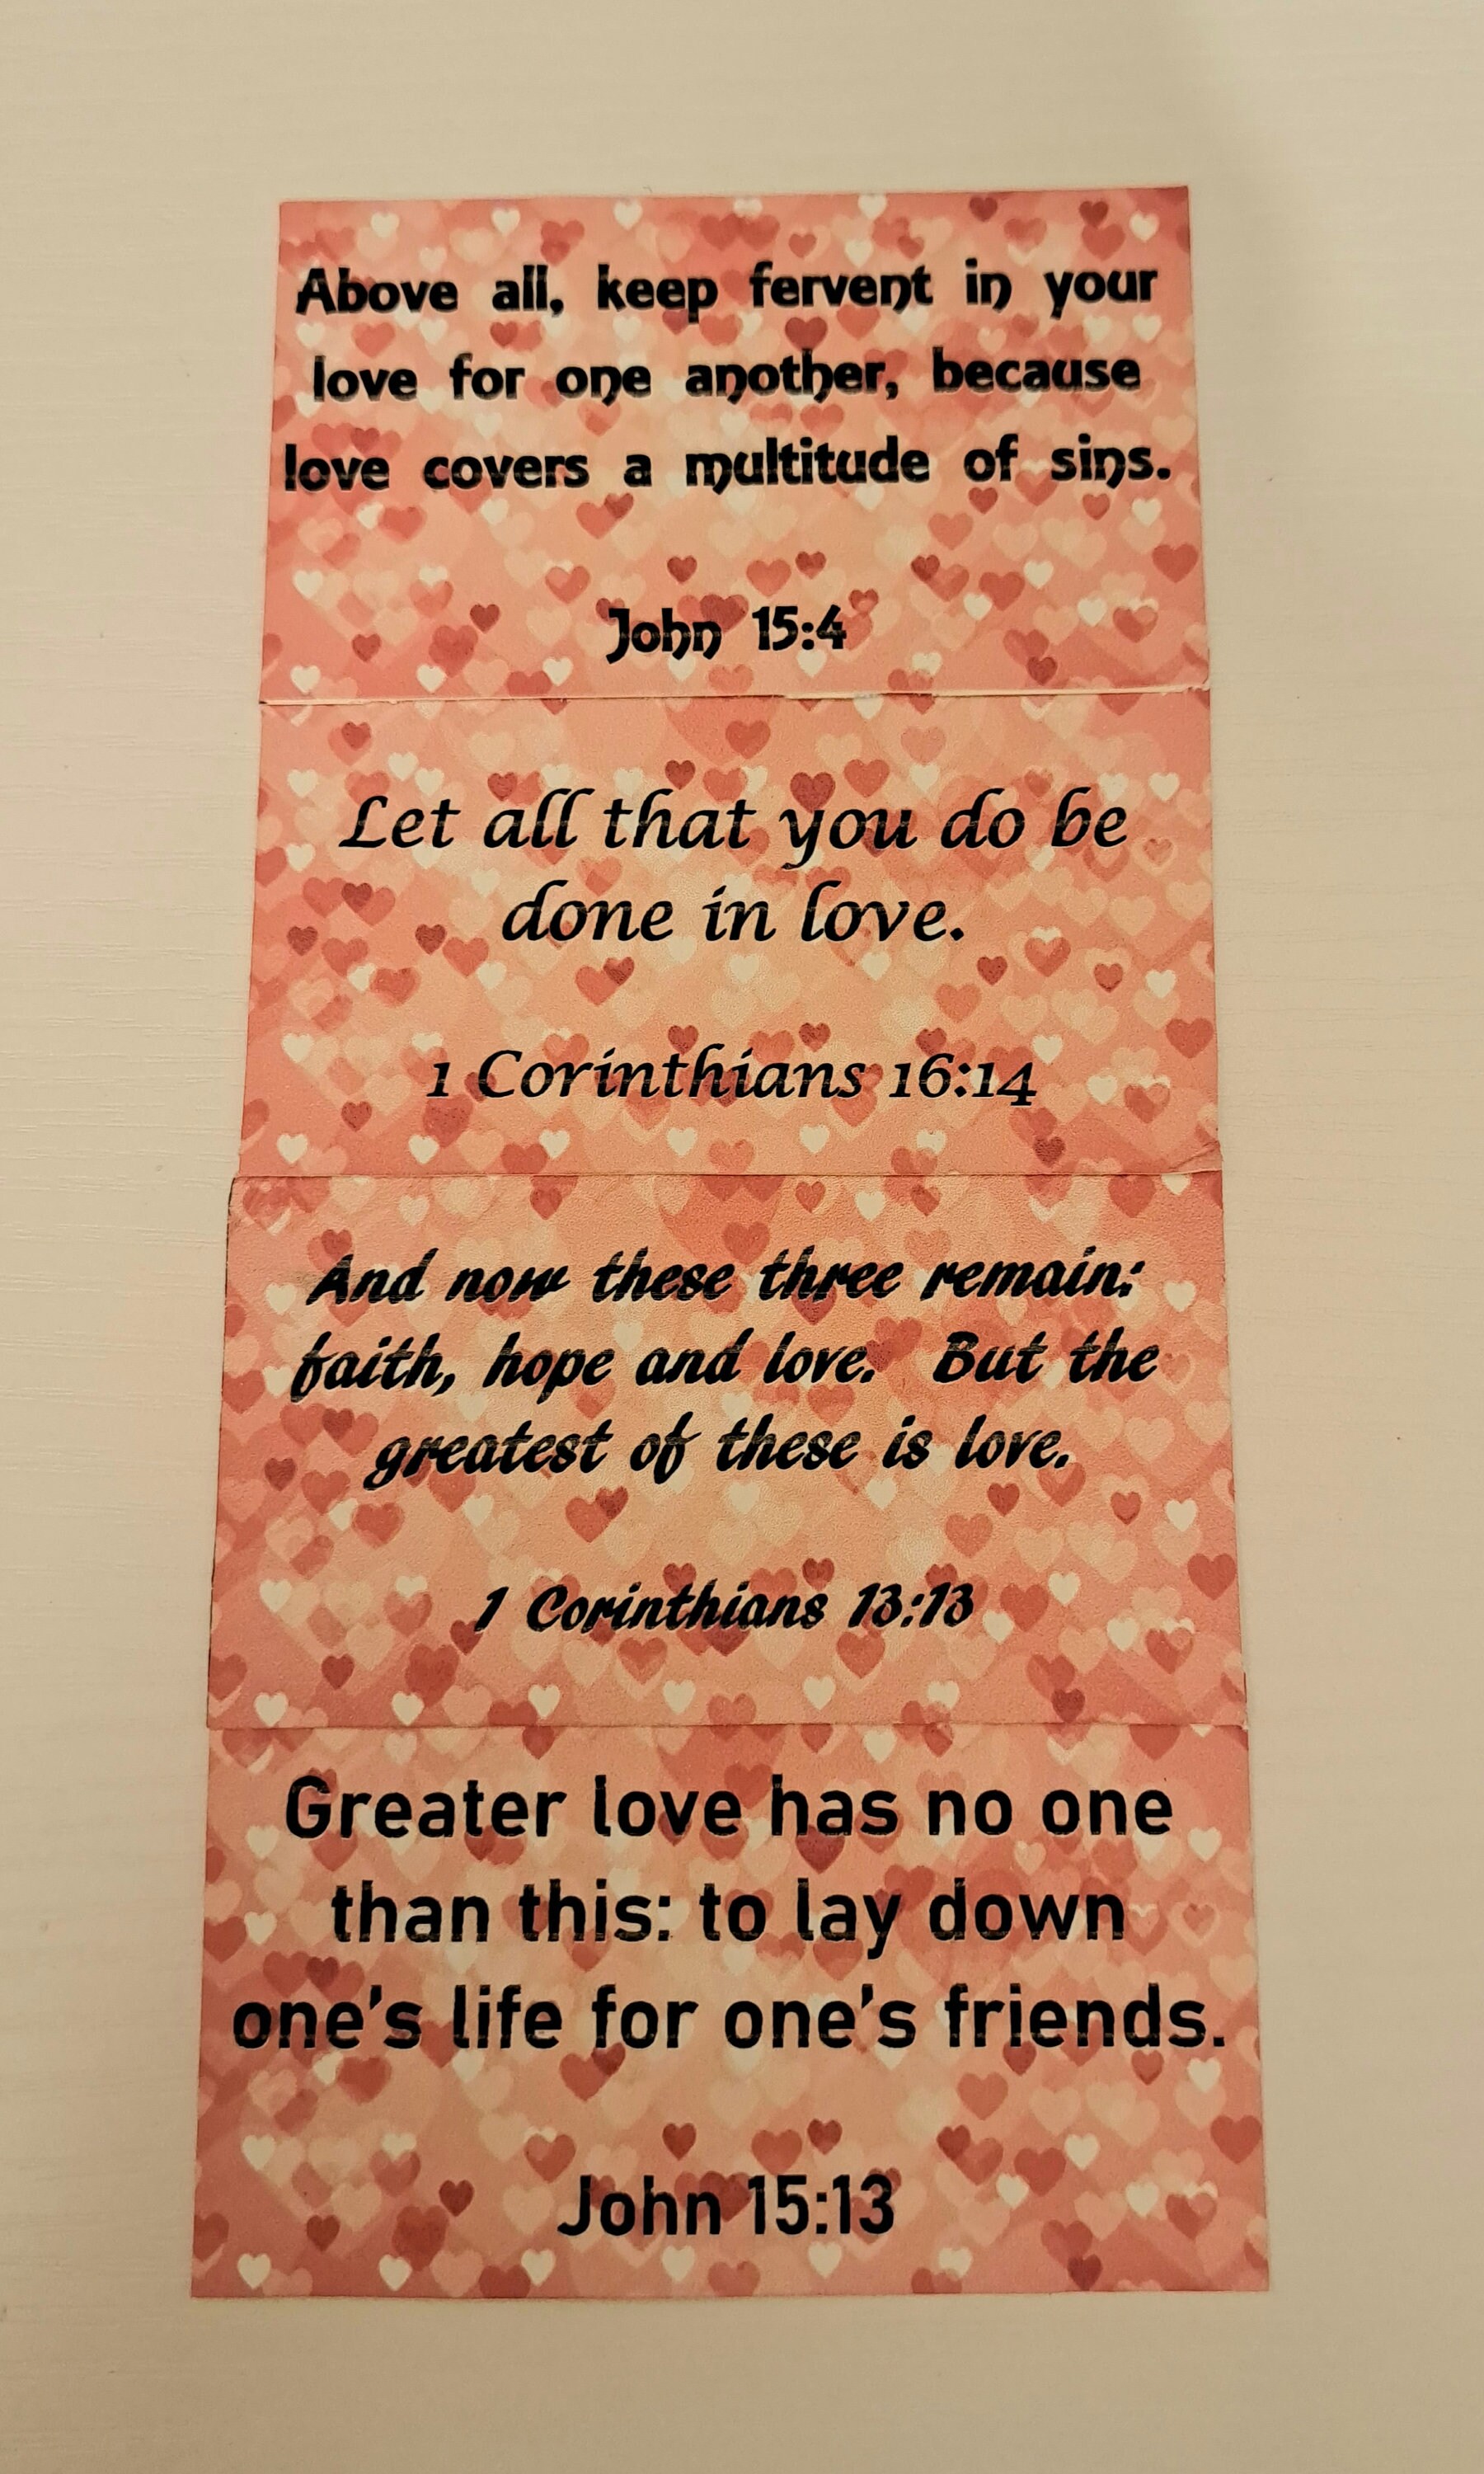 Above all, keep fervent in your
love for one another, because
love covers a multitude of sins.
John 15:4
Let all that you do be
done in love.
1 Corinthians 16:14
And now these three remain:
faith, hope and love. But the
greatest of these is love.
1 Corinthians 13:13
Greater love has no one
than this: to lay down
one's life for one's friends.
John 15:13